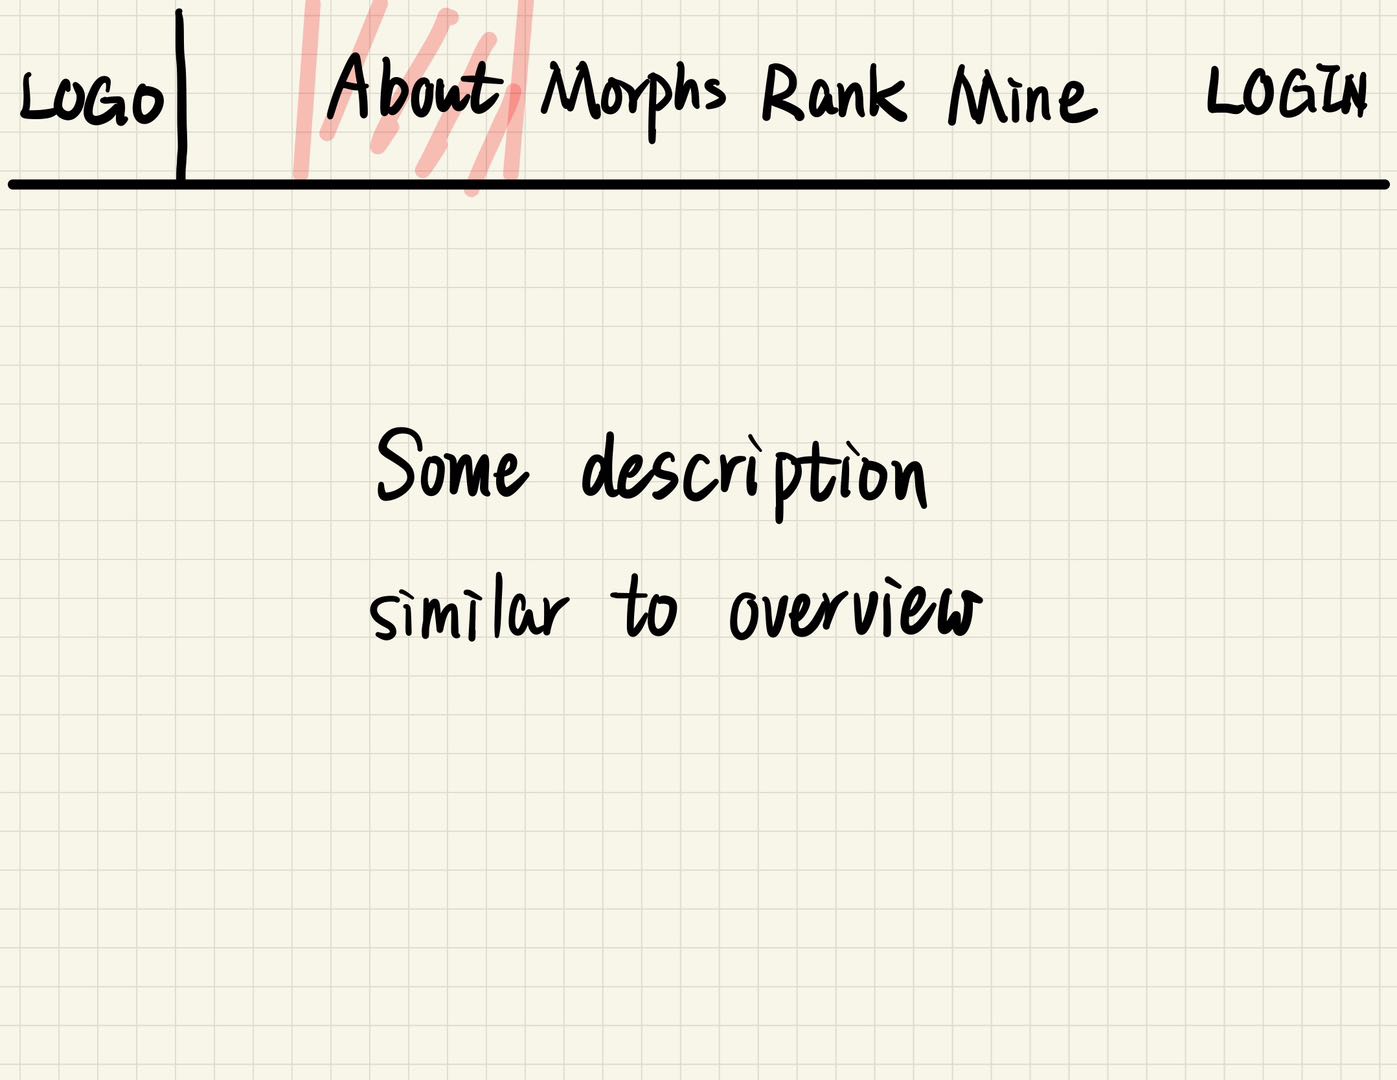 LOGO About Morphs Rank Mine LOGIN
Some description
similar to overview